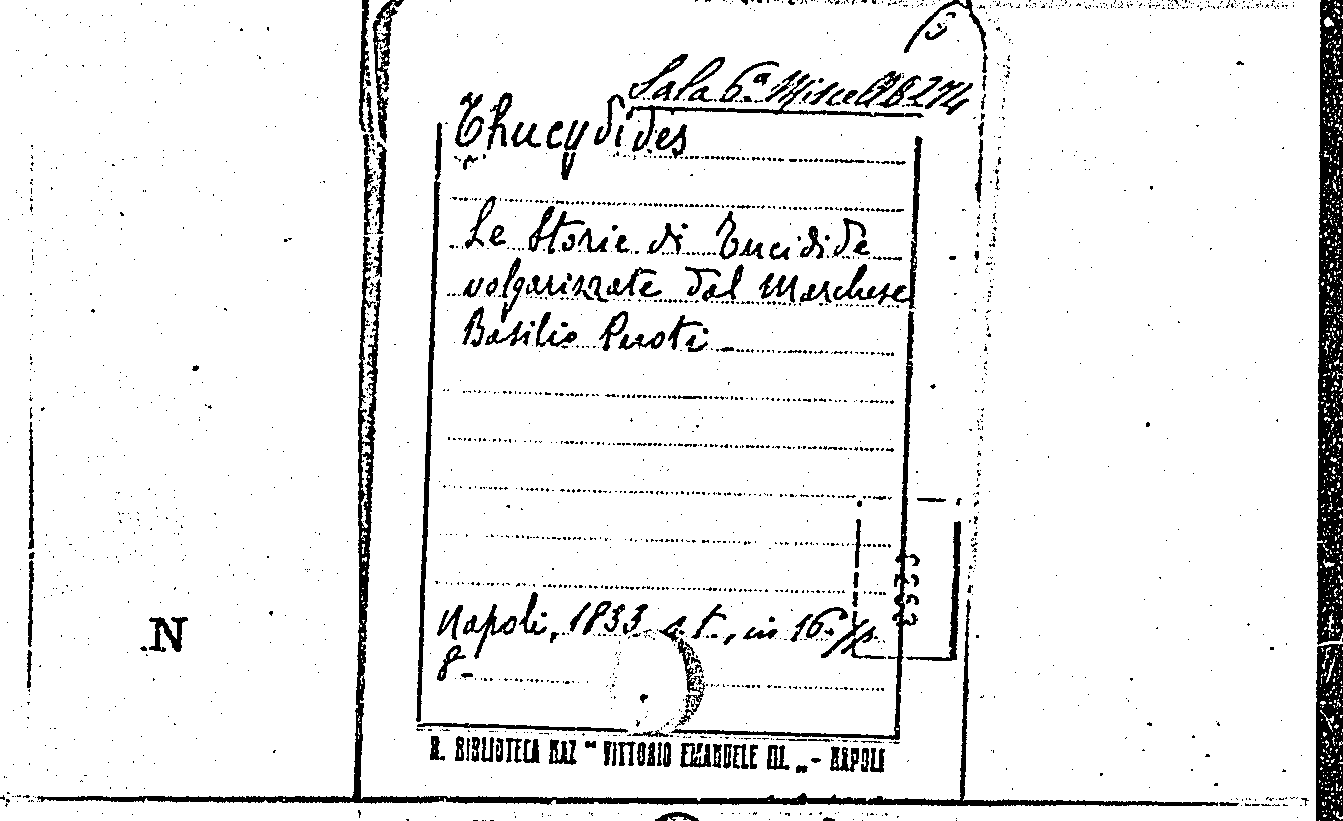 Sala 6.ª Miscell B 274
Thucydides
Le Storie di Tucidide
volgarizzate dal Marchese
Basilio Puoti_
Napoli, 1833 s. t., in 16.° pp.
8-
N
R. BIBLIOTECA NAZ " VITTORIO EMANUELE III. „ - NAPOLI